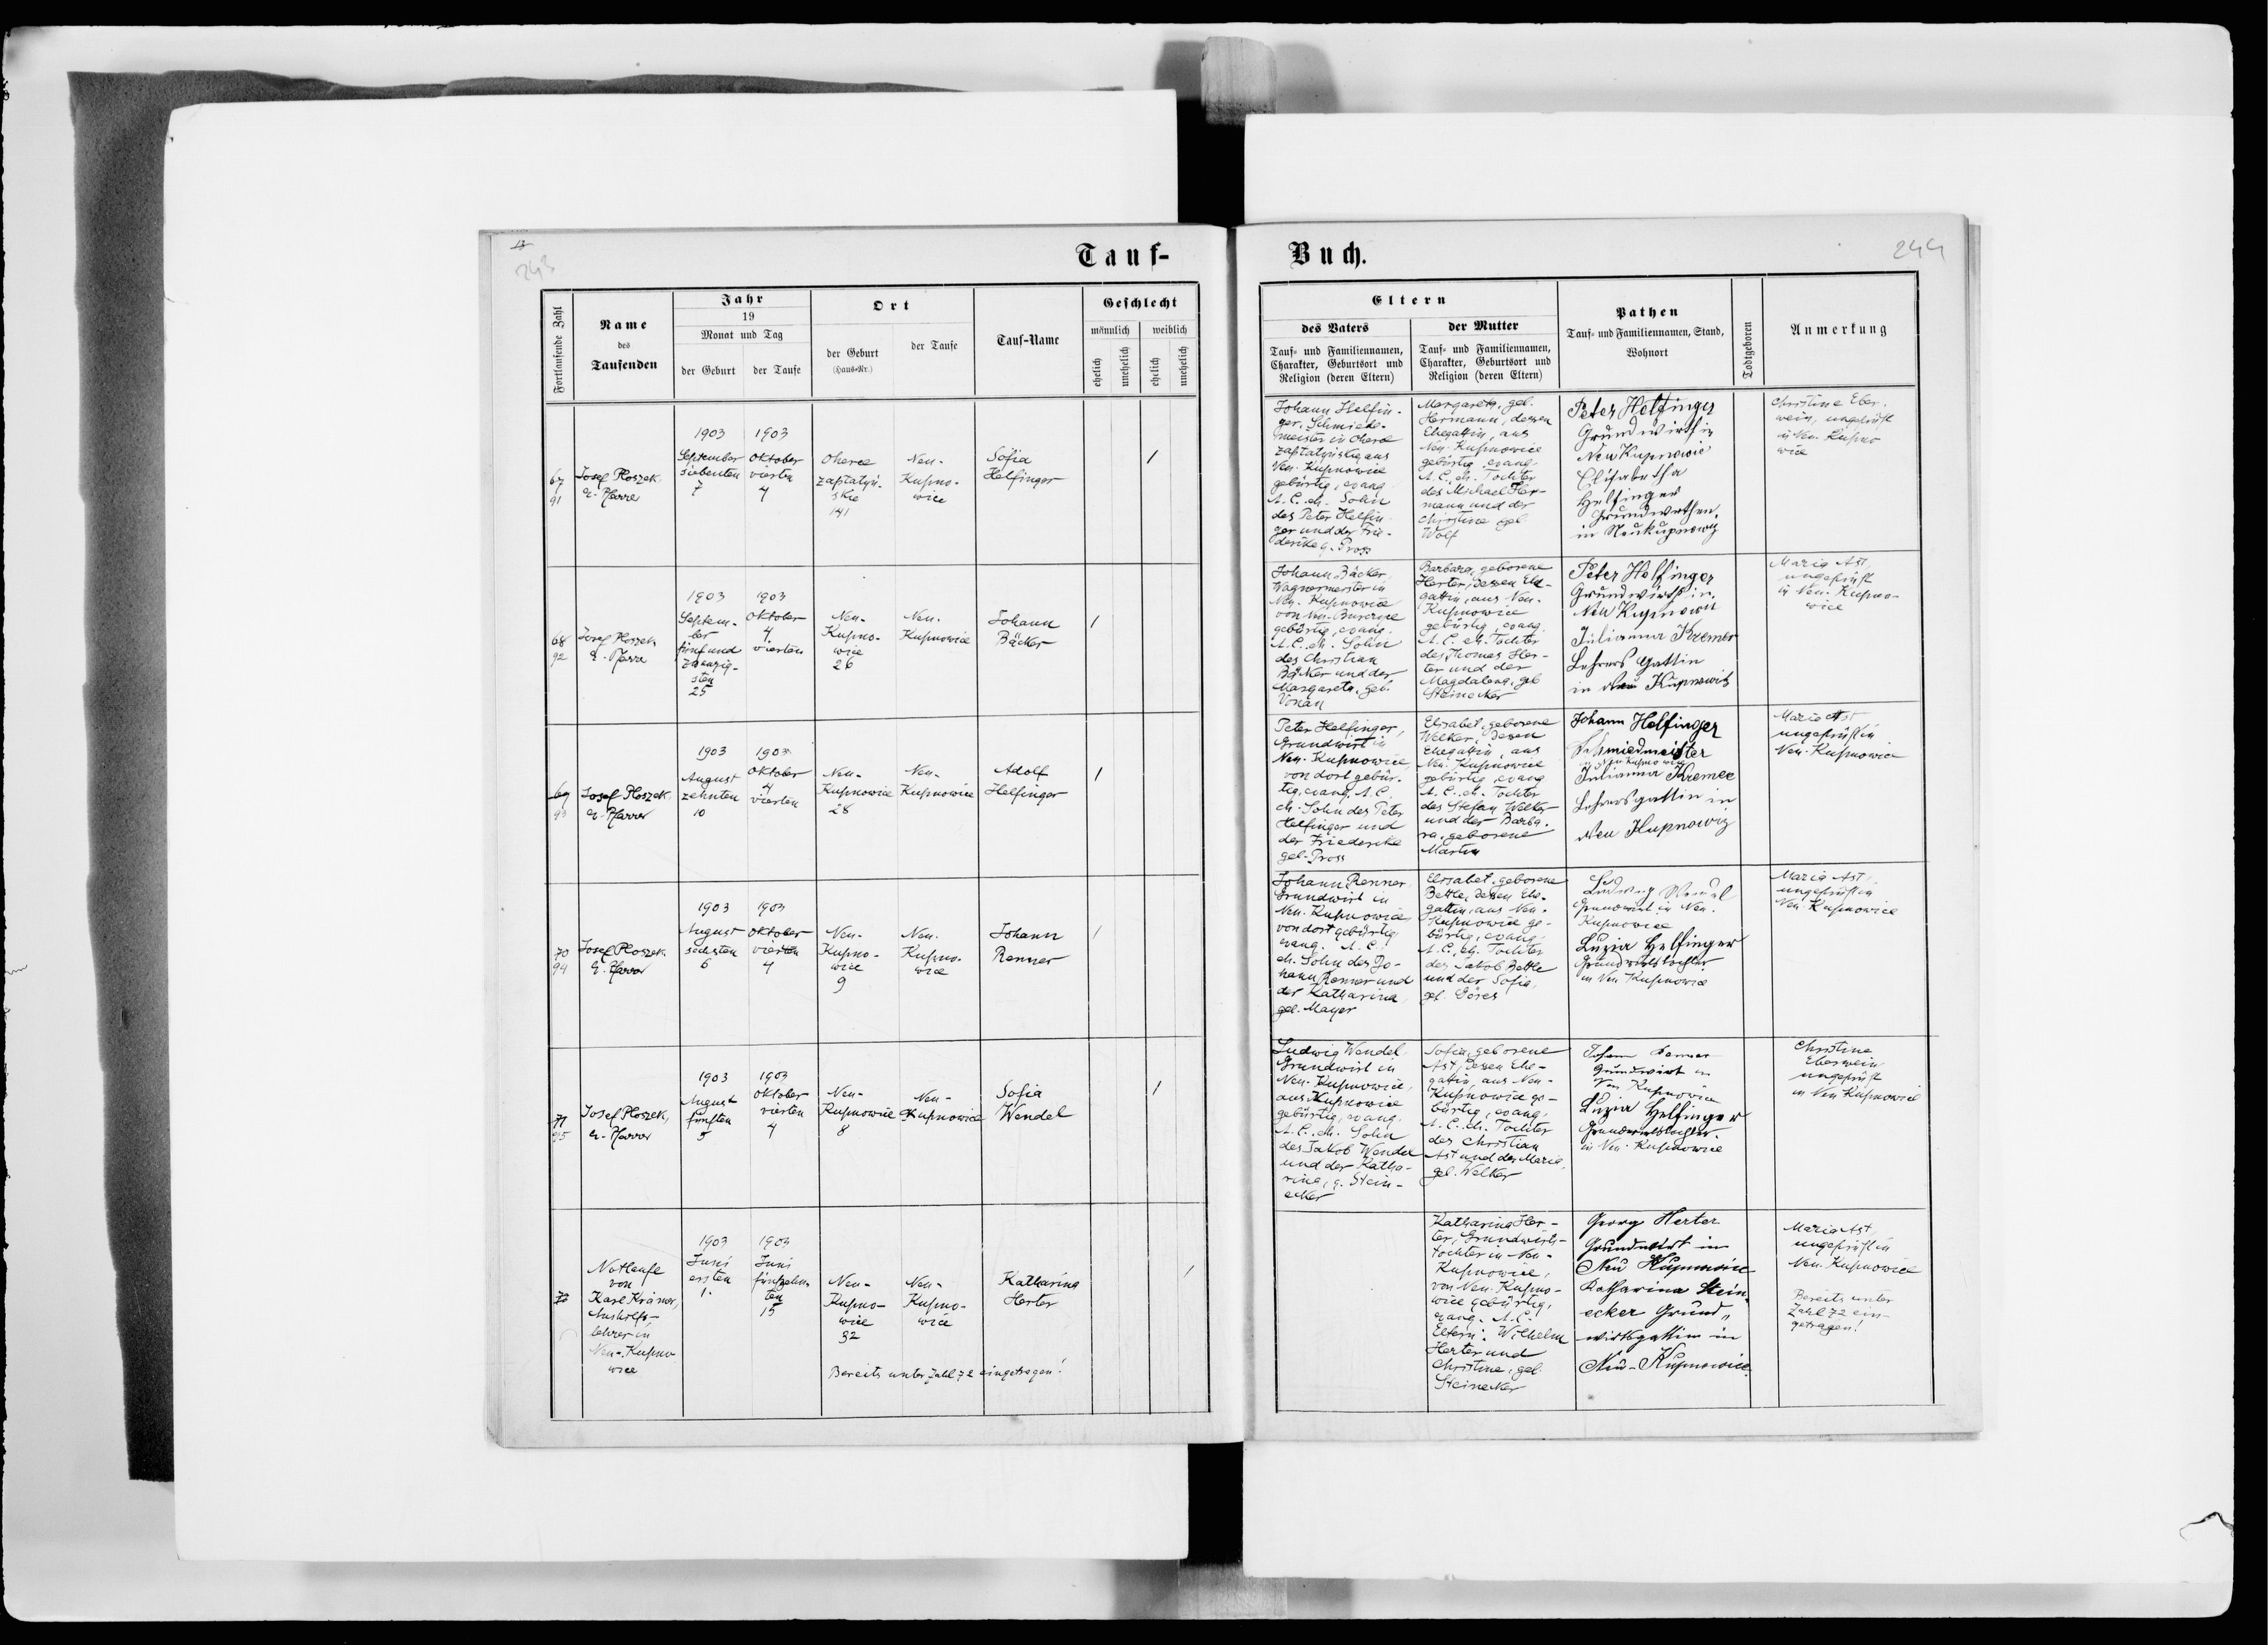 243
Tauf-
Fortlaufende Zahl
Name
des
Taufenden
Jahr
19
Monat und Tag
der Geburt
der Taufe
Ort
der Geburt
(Haus-Nr.)
der Taufe
Tauf-Name
Geschlecht
männlich
weiblich
ehelich
unehelich
ehelich
unehelich
67
91
Josef Ploszek
E. Pfarrer
1903
September
siebenten
7
1903
Oktober
vierten
4
zaplatyń-
skie
141
Neu-
Kupno-
wice
Sofia
Helfinger
68
92
Josef Ploszek
E. Pfarrer
1903
Septem-
ber
fünfund
zwanzig-
sten
25
1903
Oktober
4
vierten
Neu-
Kupno-
wice
26
Neu-
Kupnowice
Johann
Bäcker
69
93
Josef Ploszek,
E. Pfarrer
1903
August
zehnten
10
1903
Oktober
4
vierten
Neu-
Kupnowice
28
Neu-
Kupnowice
Adolf
Helfinger
70
94
Josef Ploszek
E. Pfarrer
1903
August
sechsten
6
1903
Oktober
vierten
4
Neu-
Kupno-
wice
9
Neu-
Kupno-
wice
Johann
Renner
71
95
Josef Ploszek,
E. Pfarrer
1903
August
fünften
5
1903
Oktober
vierten
4
Neu-
Kupnowice
8
Neu-
Kupnowice
Sofia
Wendel
72
Nottaufe
von
Karl Krämer,
Aushilfs-
lehrer in
Neu-Kupno
wice
1903
Juni
ersten
1.
1903
Juni
fünfzehn-
ten
15
Neu-
Kupno-
wice
32
Neu-
Kupno-
wice
Katharina
Herter
Bereits unter Zahl 72 eingetragen!
Buch.
244
Eltern
des Vaters
Tauf- und Familiennamen,
Charakter, Geburtsort und
Religion (deren Eltern)
der Mutter
Tauf- und Familiennamen,
Charakter, Geburtsort und
Religion (deren Eltern)
Pathen
Tauf- und Familiennamen, Stand,
Wohnort
Todtgeboren
Anmerkung
Johann Helfin-
ger, Schmiede-
meister in
zaplatyńskie aus
Neu-Kupnowice
gebürtig, evang.
A. C. eh. Sohn
des Peter Helfin
ger und der Frie-
derike g. Pross
Margareta, geb.
Hermann, dessen
Ehegattin, aus
Neu-Kupnowice
gebürtig, evang.
A. C., eh. Tochter
des Michael Her-
mann und der
Christine geb
Wolf
Peter Helfinger
Grundwirth in
Neu Kupnowice
Elisabetha
Helfinger
in Neukupnowitz
Christine Eber-
wein, ungeprüft
in Neu-Kupno
wice
Johann Bäcker,
Wagnermeister in
Neu-Kupnowice
von
gebürtig, evang.
A. C. eh. Sohn
des Christian
Bäcker und der
Margareta, geb.
Vonau
Barbara, geborene
Herter, dessen Ehe-
gattin, aus Neu-
Kupnowice
gebürtig, evang
A. C. eh. Tochter
des Thomas Her-
ter und der
Magdalena, geb
Steinecker
Peter Helfinger
Grundwirth in
Neu Kupnowice
Julianna Kremer
Lehrers Gattin
in Neu Kupnowitz
Maria Ast,
ungeprüft
in Neu-Kupno-
wice
Peter Helfinger,
Grundwirt in
Neu-Kupnowice
von dort gebür-
tig, evang. A. C.
eh. Sohn des Peter
Helfinger und
der Friederike
geb. Pross
Elisabet, geborene
Welker, dessen
Ehegattin, aus
Neu-Kupnowice
gebürtig, evang
A. C. eh. Tochter
des Stefan Welker
und der Barba-
ra, geborene
Martin
Johann Helfinger
Schmiedmeister
in Neu Kupnowice
Julianna Kremer
Lehrersgattin in
Neu Kupnowiz
Maria Ast
ungeprüft in
Neu-Kupnowice
Johann Renner
Grundwirt in
Neu-Kupnowice
von dort gebürtig,
evang. A. C.,
eh. Sohn des Jo-
hann Renner und
der Katharina,
geb. Mayer
Elisabet, geborene
Bettle, dessen Ehe-
gattin, aus Neu-
Kupnowice ge-
bürtig, evang.
A. C., eh. Tochter
des Jakob Bettle
und der Sofia,
geb. Göres
Ludwig Wendel
Grundwirt in Neu-
Kupnowice
Luzia Helfinger
Grundwirtstochter
in Neu Kupnowice
Maria Ast,
ungeprüft in
Neu-Kupnowice
Ludwig Wendel
Grundwirt in
Neu-Kupnowice,
aus Kupnowice
gebürtig, evang.
A. C. eh. Sohn
des Jakob Wendel
und der Katha-
rina, g. Stein-
ecker
Sofia, geborene
Ast, dessen Ehe-
gattin, aus Neu-
Kupnowice ge-
bürtig, evang,
A. C. eh. Tochter
des Christian
Ast und der Maria,
geb. Welker
Johann Renner
Grundwirt in
Neu Kupnowice
Luzia Helfinger
Grundwirtstochter
in Neu-Kupnowice
Christine
Eberwein
ungeprüft
in Neu Kupnowice
Katharina Her-
ter, Grundwirts-
tochter in Neu-
Kupnowice,
von Neu-Kupno-
wice gebürtig,
evang. A. C.
Eltern: Wilhelm
Herter und
Christine, geb
Steinecker
Georg Herter
Grundwirt in
Neu Kupnowice
Katharina Stein-
ecker Grund-
wirtsgattin in
Neu-Kupnowice
Maria Ast
ungeprüft in
Neu-Kupnowice
Bereits unter
Zahl 72 ein-
getragen!